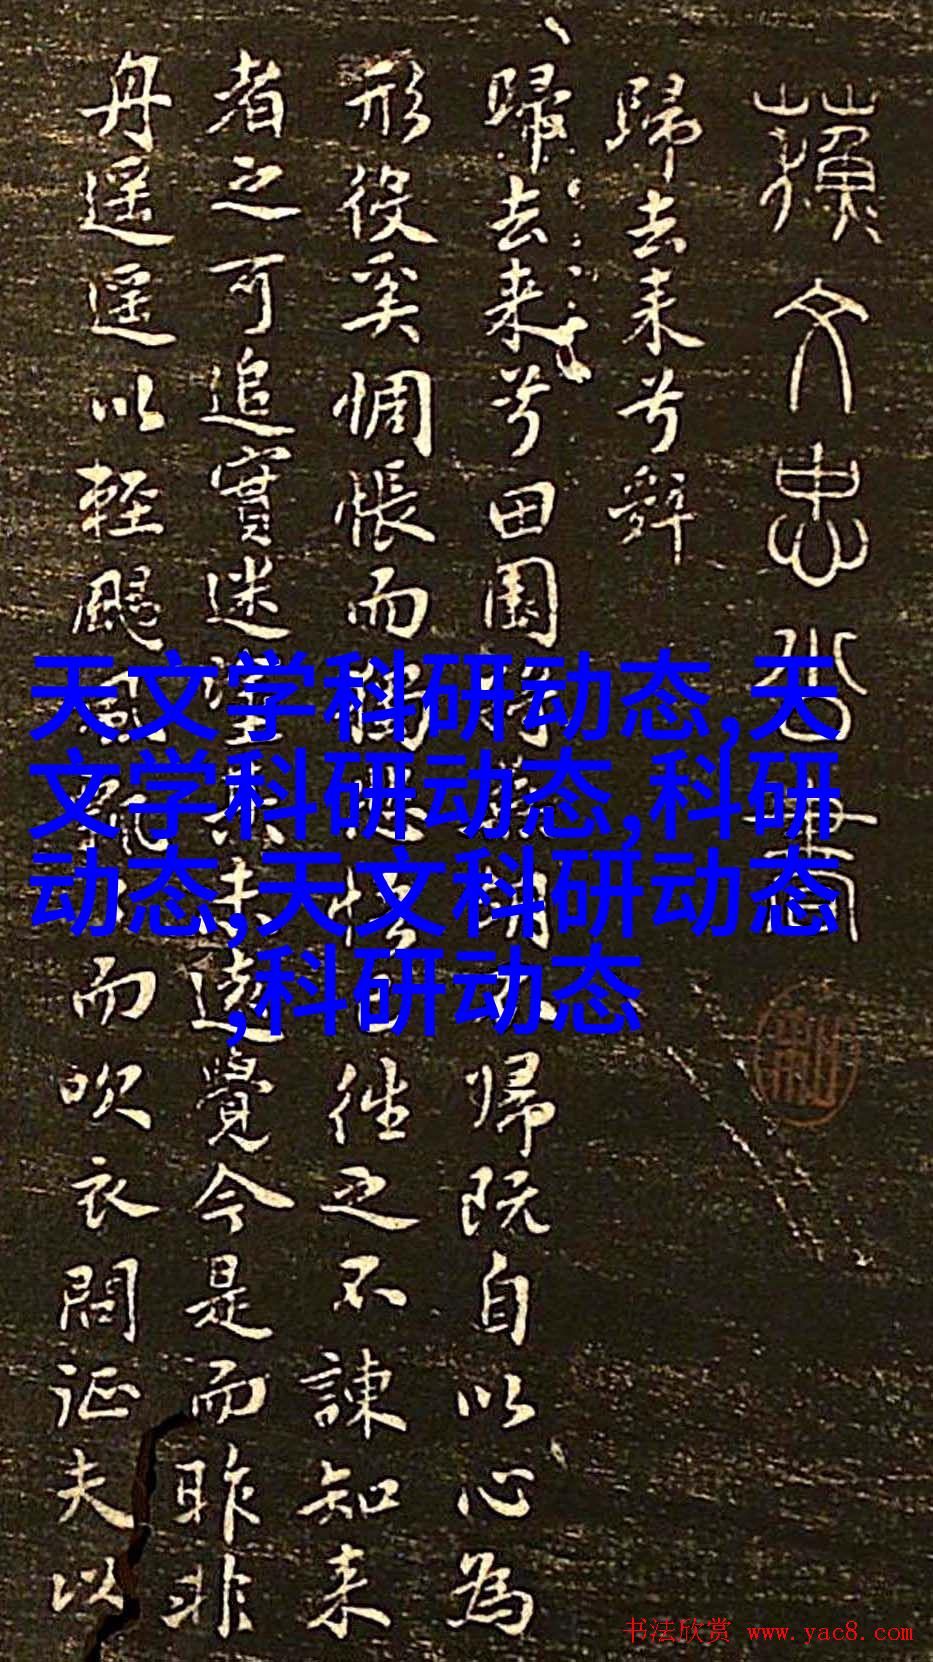 蘇文忠公書
歸去来兮辭
歸去来兮田園將蕪胡不帰既自以心為
形役奚惆悵而獨悲悟已往之不諫知来
者之可追實迷塗其未遠覺今是而昨非
舟遥遥以輕颺風飄而吹衣問征夫以
天文学科研动态,天
文学科研动态,科研
动态,天文科研动态
,科研动态
书法欣赏 www.yac8.com